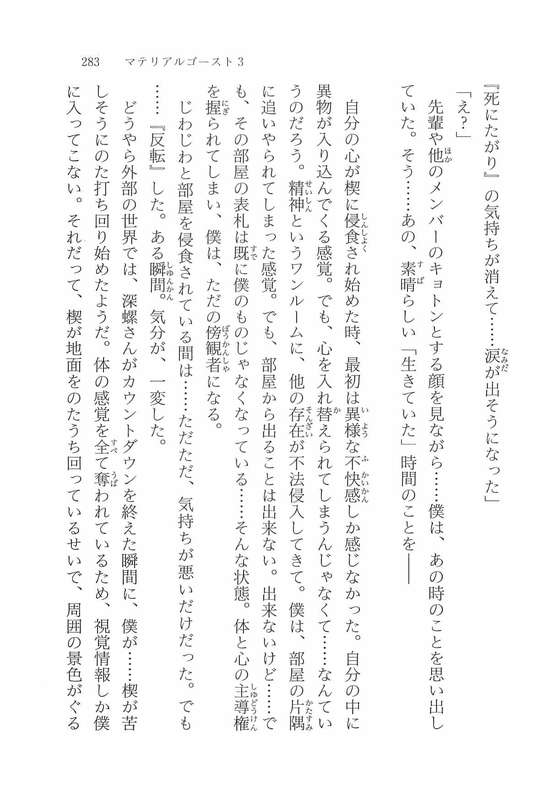 283　マテリアルゴースト3
『死にたがり』の気持ちが消えて……涙が出そうになった」
「え？」
　先輩や他のメンバーのキョトンとする顔を見ながら……僕は、あの時のことを思い出し
ていた。そう……あの、素晴らしい「生きていた」時間のことを――
　自分の心が楔に侵食され始めた時、最初は異様な不快感しか感じなかった。自分の中に
異物が入り込んでくる感覚。でも、心を入れ替えられてしまうんじゃなくて……なんてい
うのだろう。精神というワンルームに、他の存在が不法侵入してきて。僕は、部屋の片隅
に追いやられてしまった感覚。でも、部屋から出ることは出来ない。出来ないけど……で
も、その部屋の表札は既に僕のものじゃなくなっている……そんな状態。体と心の主導権
を握られてしまい、僕は、ただの傍観者になる。
　じわじわと部屋を侵食されている間は……ただただ、気持ちが悪いだけだった。でも
……『反転』した。ある瞬間。気分が、一変した。
　どうやら外部の世界では、深螺さんがカウントダウンを終えた瞬間に、僕が……楔が苦
しそうにのた打ち回り始めたようだ。体の感覚を全て奪われているため、視覚情報しか僕
に入ってこない。それだって、楔が地面をのたうち回っているせいで、周囲の景色がぐる